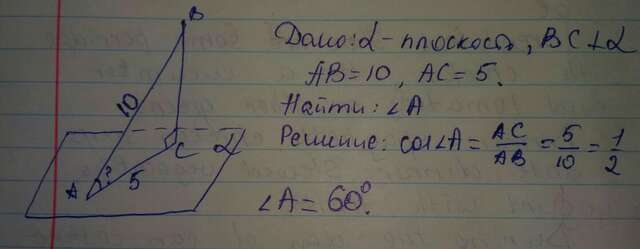 B
10
A
?
5
C
α
Дано: α - плоскость, BC⊥α
AB=10, AC=5.
Найти: ∠A
Решение: cos∠A = AC/AB = 5/10 = 1/2
∠A = 60°.